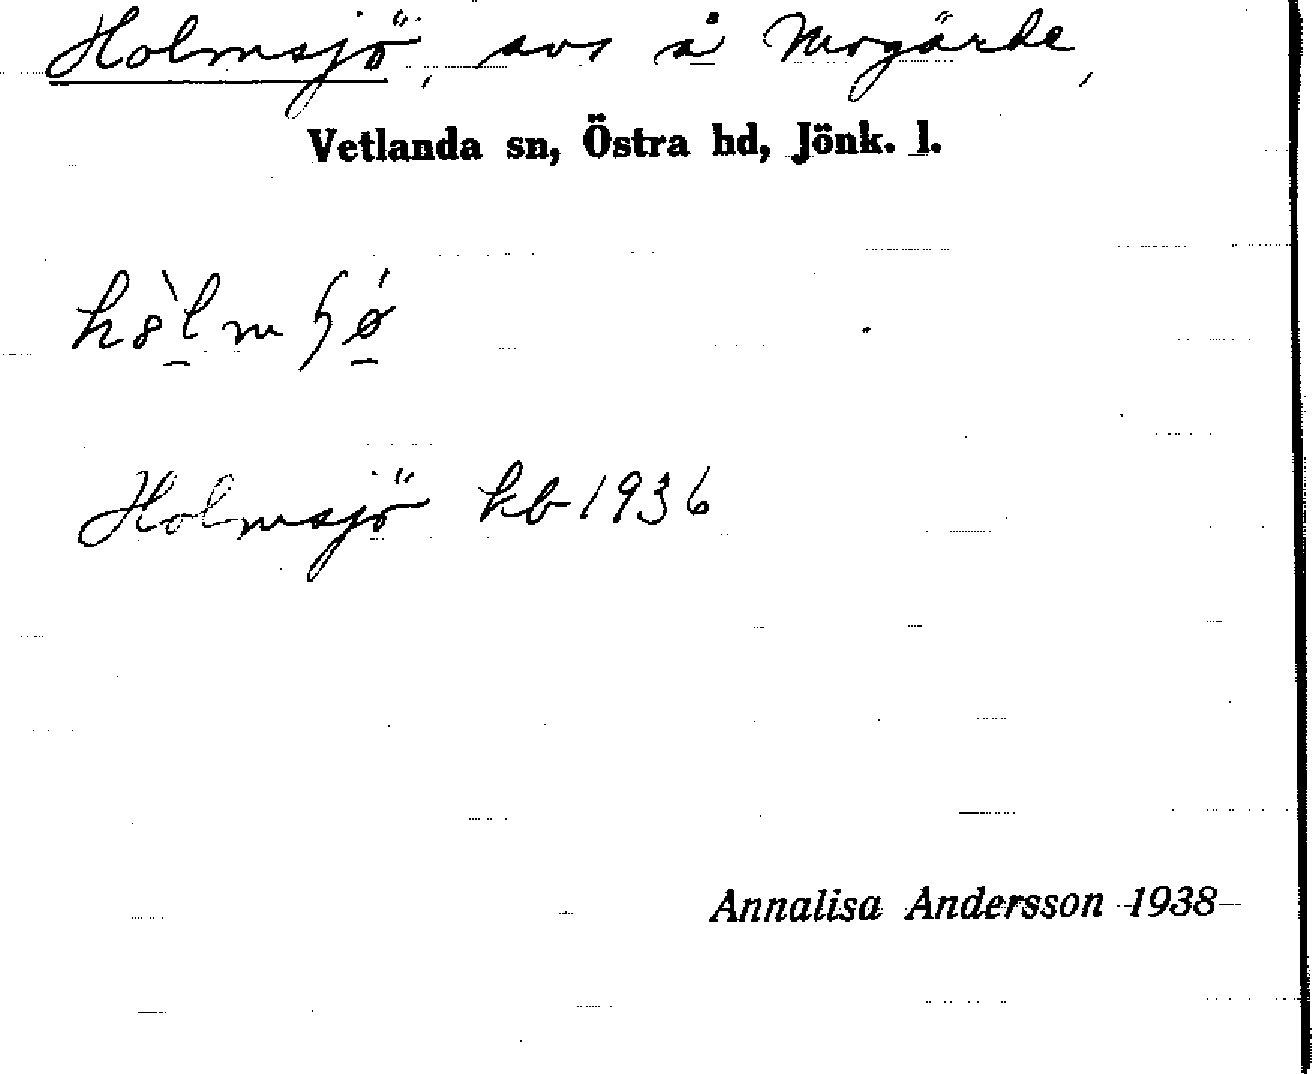 Holmsjö, avs å Mogärde,
Vetlanda sn, Östra hd, Jönk. l.
Holmsjö kb 1936
Annalisa Andersson 1938